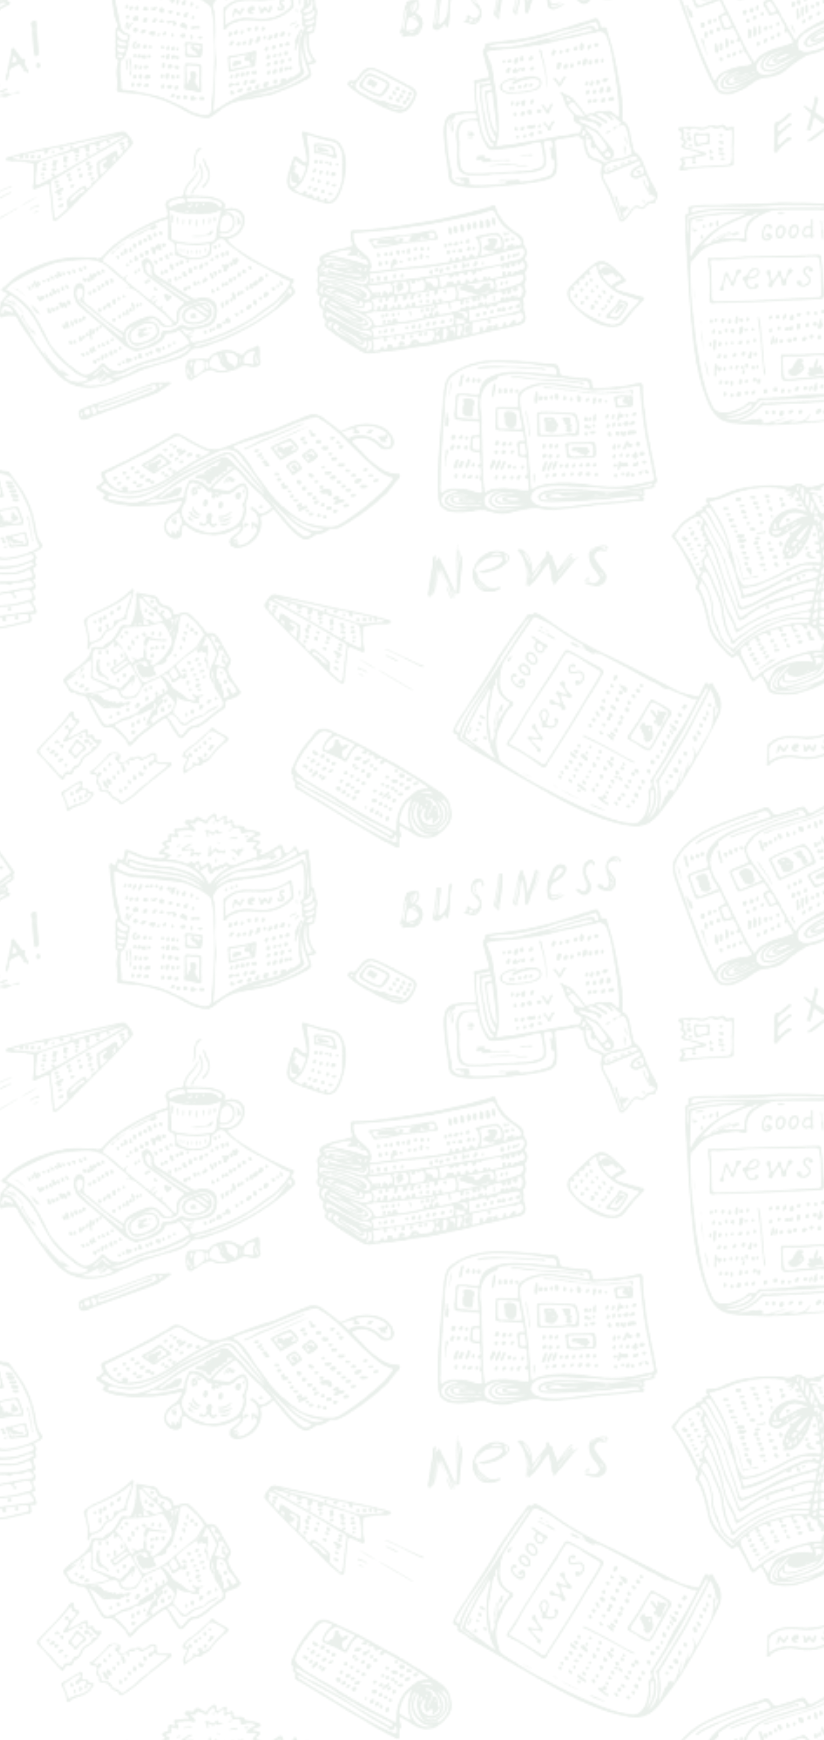 BUSINE
A!
EX
GOOD
NEWS
NEWS
GOOD!
NEWS
NEW
NEWS
BUSINESS
A!
EX
GOOD
NEWS
NEWS
GOOD!
NEWS
NEW